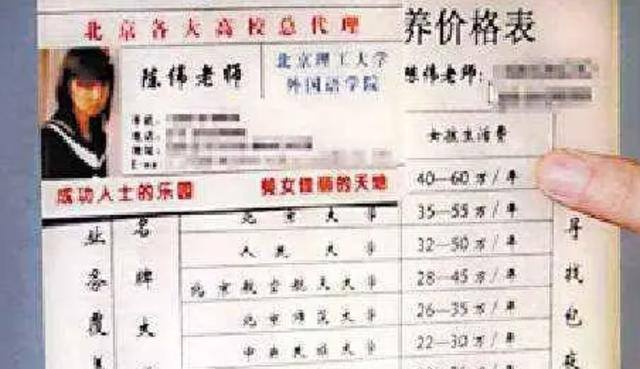 北京各大高校总代理
养价格表
陈伟老师
北京理工大学
外国语学院
陈伟老师:
手机:
电话:
地址:
女孩生活费
成功人士的乐园
美女佳丽的天地
40—60万/年
北京大学
35—55万/年
人民大学
32—50万/年
北京航空航天大学
28—45万/年
北京师范大学
26—35万/年
中央民族大学
22—30万/年
名牌大
寻找包